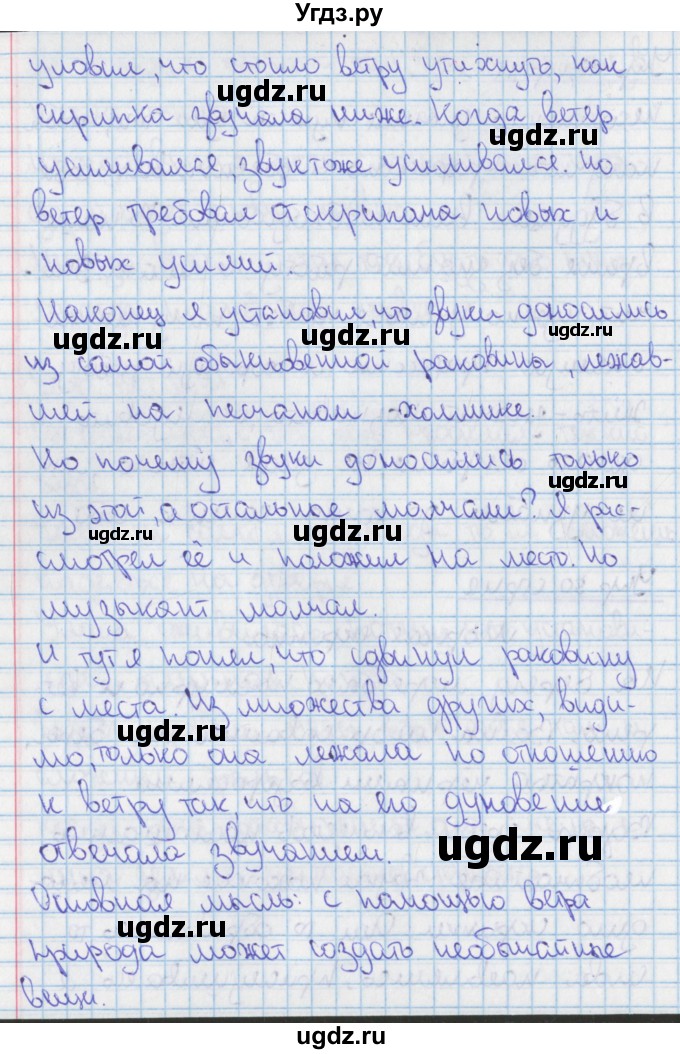 Угдз.ру
уловил, что стоило ветру утихнуть, как
скрипка звучала ниже. Когда ветер
ugdz.ru ugdz.ru
усиливался, звук тоже усиливался. Но
ветер требовал от скрипача новых и
новых усилий.
Наконец я установил, что звуки доносились
ugdz.ru ugdz.ru ugdz.ru
из самой обыкновенной раковины, лежав-
шей на песчаном холмике.
Но почему звуки доносились только
из этой, а остальные молчали? Я рас-
ugdz.ru ugdz.ru ugdz.ru
смотрел её и положил на место. Но
музыкант молчал.
И тут я понял, что сдвинул раковину
с места. Из множества других, види-
ugdz.ru ugdz.ru
мо, только она лежала по отношению
к ветру так, что на его дуновение
отвечала звучанием.
ugdz.ru
Основная мысль: с помощью ветра
ugdz.ru
природа может создать необычайные
вещи.
ugdz.ru